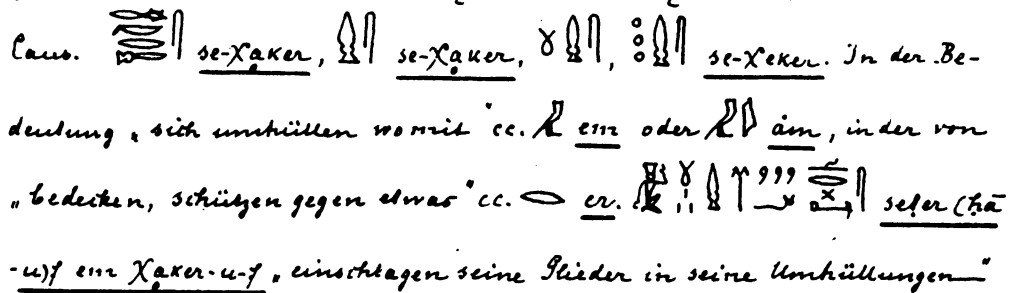 Caus. se-χaḳer, se-χaḳer, se-χeker. In der Be-
deutung „sich umhüllen womit" cc. em oder àm, in der von
„bedecken, schützen gegen etwas" cc. er. (hā
-u)f em χaḳer-u-f „einschlagen seine Glieder in seine Umhüllungen"